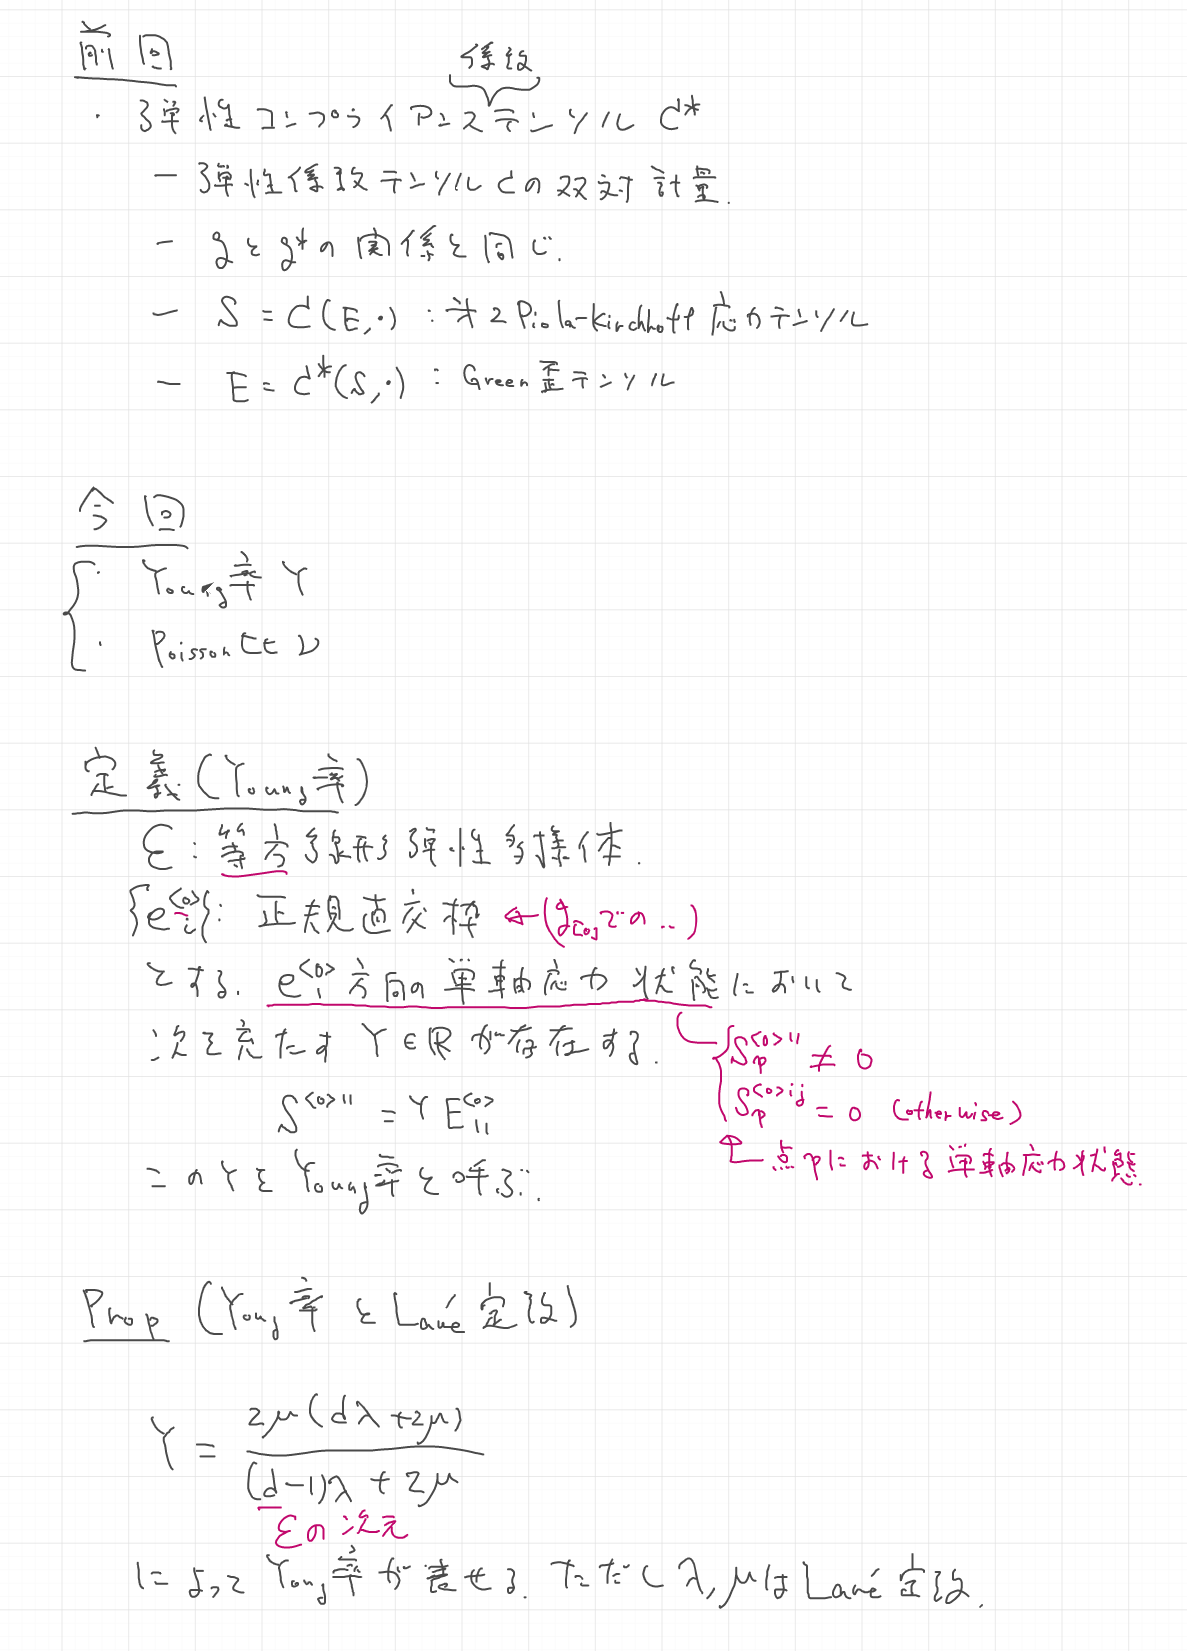 前回
係数
・弾性コンプライアンステンソル C*
― 弾性係数テンソルCの双対計量.
― gとg*の関係と同じ.
― S = C(E,・) : 第2 Piola-Kirchhoff 応力テンソル
― E = C*(S,・) : Green歪テンソル
今回
・ Young率 Y
・ Poisson比 ν
定義(Young率)
ℰ : 等方線形弾性多様体.
{e^<0>_i} : 正規直交枠 ←(g_[0]での..)
とする. e^<0>_1方向の単軸応力状態において
次を充たす Y∈ℝ が存在する.
S_p^<0>11 ≠ 0
S_p^<0>ij = 0 (otherwise)
S^<0>11 = Y E^<0>_11
点pにおける単軸応力状態.
このYをYoung率と呼ぶ.
Prop (Young率とLamé定数)
Y = 2μ(dλ+2μ) / ((d-1)λ + 2μ)
ℰの次元
によってYoung率が表せる. ただしλ,μはLamé定数.